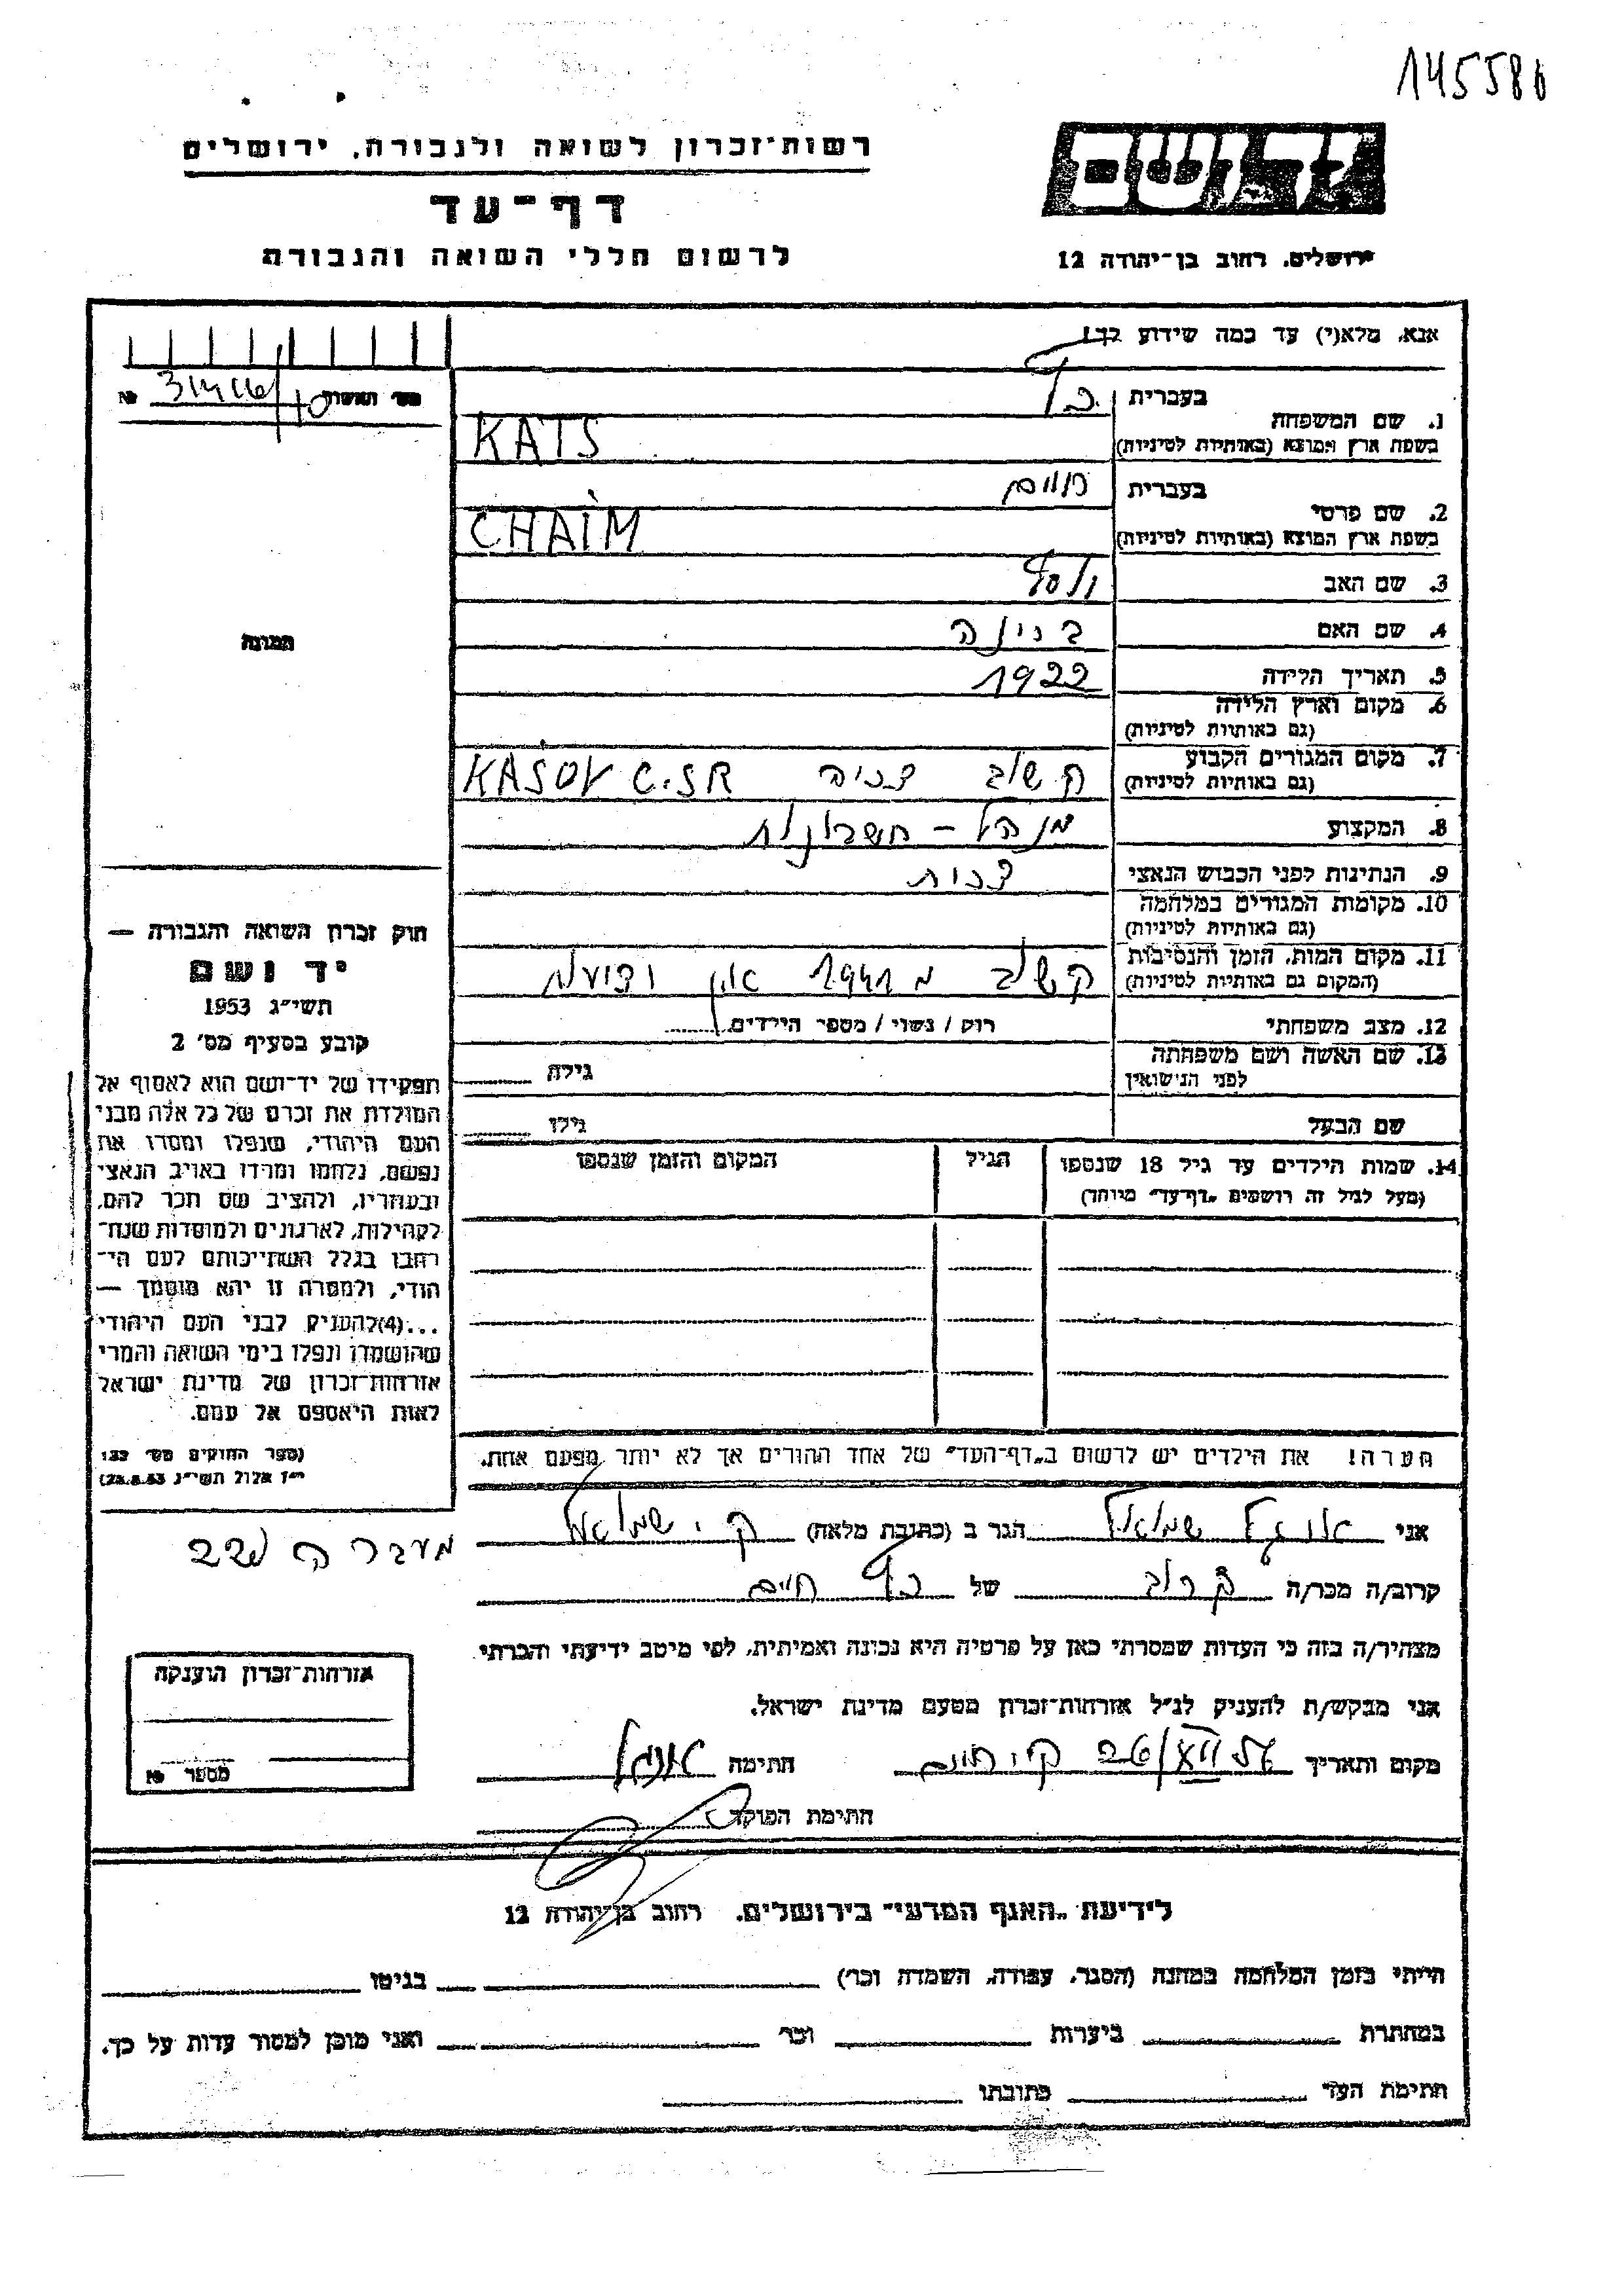 145586
רשות־זכרון לשואה ולגבורה, ירושלים
דף־עד
לרשום חללי השואה והגבורה
יד ושם
ירושלים, רחוב בן־יהודה 12
אנא, מלא(י) עד כמה שידוע לך!
מס' האשרה № 
1. שם המשפחה
בעברית כץ
בשפת ארץ המוצא (באותיות לטיניות) KATS
2. שם פרטי
בעברית חיים
בשפת ארץ המוצא (באותיות לטיניות) CHAIM
3. שם האב יוסף
4. שם האם
5. תאריך הלידה 1922
6. מקום וארץ הלידה
(גם באותיות לטיניות)
7. מקום המגורים הקבוע
(גם באותיות לטיניות) קשוב צכיה KASOV C.SR
8. המקצוע מנהל - חשבונות
9. הנתינות לפני הכבוש הנאצי צכית
10. מקומות המגורים במלחמה
(גם באותיות לטיניות)
11. מקום המות, הזמן והנסיבות
(המקום גם באותיות לטיניות) קשוב מ 1941 אין ידיעות
12. מצב משפחתי רוק / נשוי / מספר הילדים
13. שם האשה ושם משפחתה
לפני הנישואין גילה
שם הבעל גילו
14. שמות הילדים עד גיל 18 שנספו הגיל המקום והזמן שנספו
(מעל לגיל זה רושמים „דף־עד” מיוחד)
הערה! את הילדים יש לרשום ב„דף־העד” של אחד ההורים אך לא יותר מפעם אחת.
תמונה
חוק זכרון השואה והגבורה —
יד ושם
תשי״ג 1953
קובע בסעיף מס' 2
תפקידו של יד־ושם הוא לאסוף אל
המולדת את זכרם של כל אלה מבני
העם היהודי, שנפלו ומסרו את
נפשם, נלחמו ומרדו באויב הנאצי
ובעוזריו, ולהציב שם וזכר להם,
לקהילות, לארגונים ולמוסדות שנח־
רבו בגלל השתייכותם לעם הי־
הודי, ולמטרה זו יהא מוסמך —
...(4)להעניק לבני העם היהודי
שהושמדו ונפלו בימי השואה והמרי
אזרחות־זכרון של מדינת ישראל
לאות היאספם אל עמם.
(ספר החוקים מס' 132
י״ז אלול תשי״ג 28.8.53)
אני שמואל הגר ב (כתובת מלאה) ק. שמואל
קרוב/ה מכר/ה קרוב של כץ חיים
מצהיר/ה בזה כי העדות שמסרתי כאן על פרטיה היא נכונה ואמיתית, לפי מיטב ידיעתי והכרתי
אני מבקש/ת להעניק לנ״ל אזרחות־זכרון מטעם מדינת ישראל.
מקום ותאריך ק. חיים חתימה
חתימת הפוקד
אזרחות־זכרון הוענקה
מספר №
לידיעת „האגף המדעי” בירושלים, רחוב בן־יהודה 12
הייתי בזמן המלחמה במחנה (הסגר, עבודה, השמדה וכו') בגיטו
במחתרת ביערות וכו' ואני מוכן למסור עדות על כך.
חתימת העד כתובתו